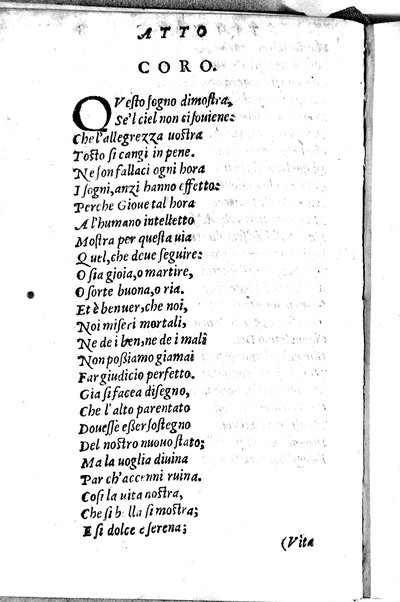 ATTO
CORO.
QVesto sogno dimostra,
Se'l ciel non ci souiene:
Che l'allegrezza uostra
Tosto si cangi in pene.
Ne son fallaci ogni hora
I sogni, anzi hanno effetto:
Perche Gioue tal hora
A l'humano intelletto
Mostra per questa uia
Quel, che deue seguire:
O sia gioia, o martire,
O sorte buona, o ria.
Et è ben uer, che noi,
Noi miseri mortali,
Ne de i ben, ne de i mali
Non poßiamo giamai
Far giudicio perfetto.
Gia si facea disegno,
Che l'alto parentato
Douesse eßer sostegno
Del nostro nuouo stato;
Ma la uoglia diuina
Par ch'accenni ruina.
Cosi la uita nostra,
Che si bella si mostra;
E si dolce e serena;
(Vita